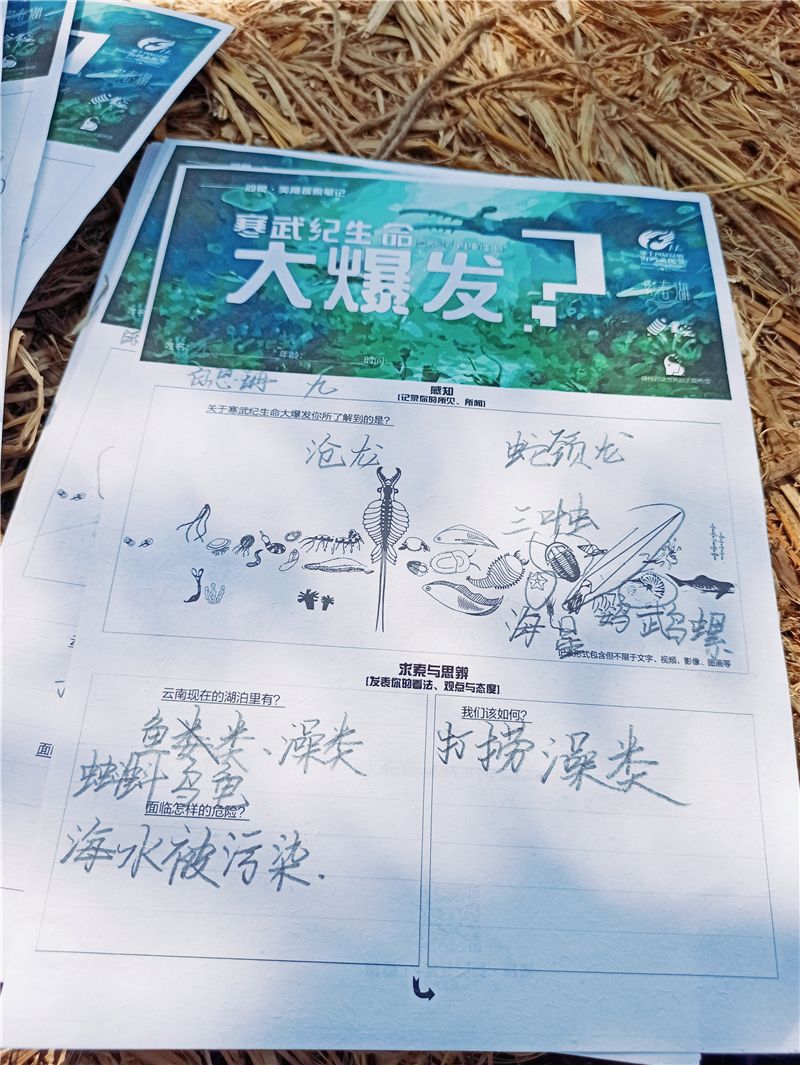 自然·美育探索笔记
寒武纪生命
大爆发?
姓名:
年龄:
时间:
九
感知
(记录你的所见、所闻)
关于寒武纪生命大爆发你所了解到的是?
沧龙
蛇颈龙
三叶虫
海星
鹦鹉螺
记录形式包含但不限于文字、视频、影像、图画等
求索与思辨
(发表你的看法、观点与态度)
云南现在的湖泊里有?
鱼类、澡类
蝌蚪乌龟
面临怎样的危险?
海水被污染.
我们该如何?
打捞澡类